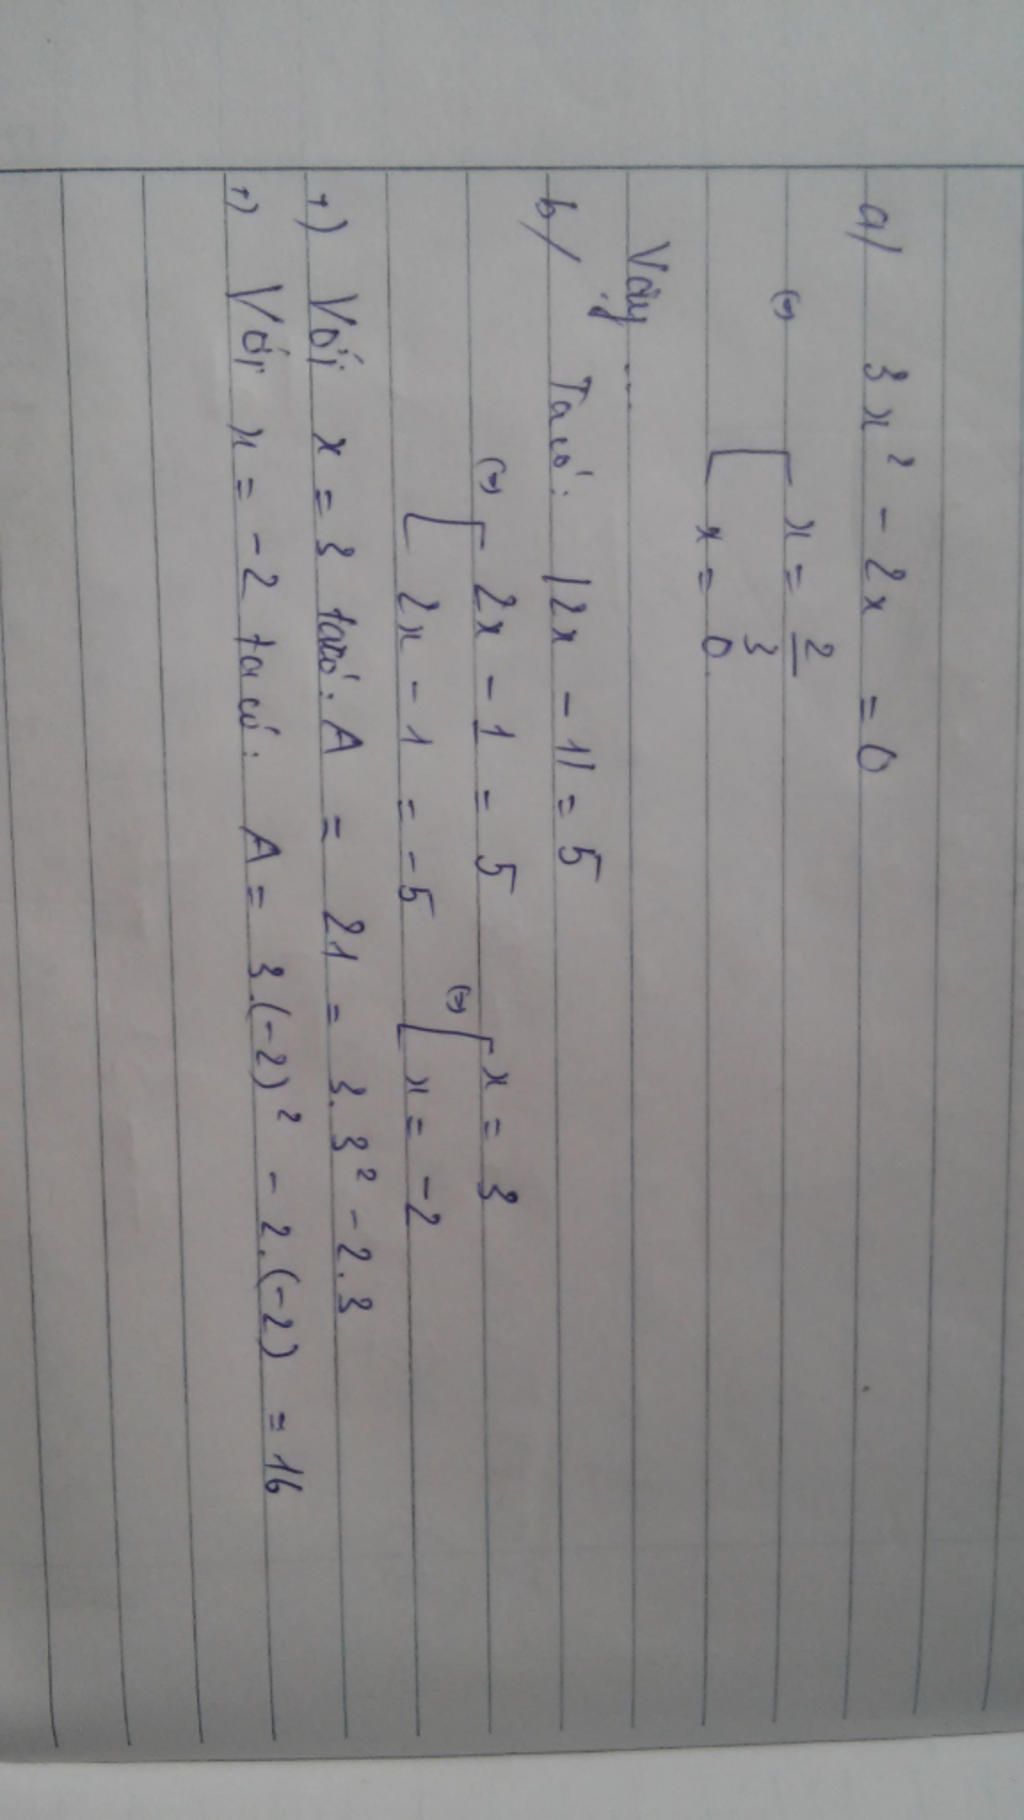 a/ 3x² - 2x = 0
(=) [ x = 2/3
[ x = 0
Vậy ...
b/ Ta có: |2x - 1| = 5
(=) [ 2x - 1 = 5 (=) [ x = 3
[ 2x - 1 = -5 [ x = -2
+) Với x = 3 ta có: A = 21 = 3.3² - 2.3
+) Với x = -2 ta có: A = 3.(-2)² - 2.(-2) = 16